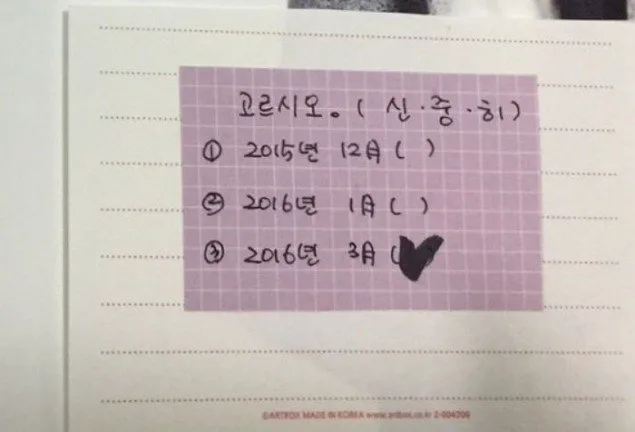 고르시오. ( 신·중·히)
① 2015년 12月 ( )
② 2016년 1月 ( )
③ 2016년 3月 (♥)
©ARTBOX MADE IN KOREA www.artbox.co.kr 2-004206